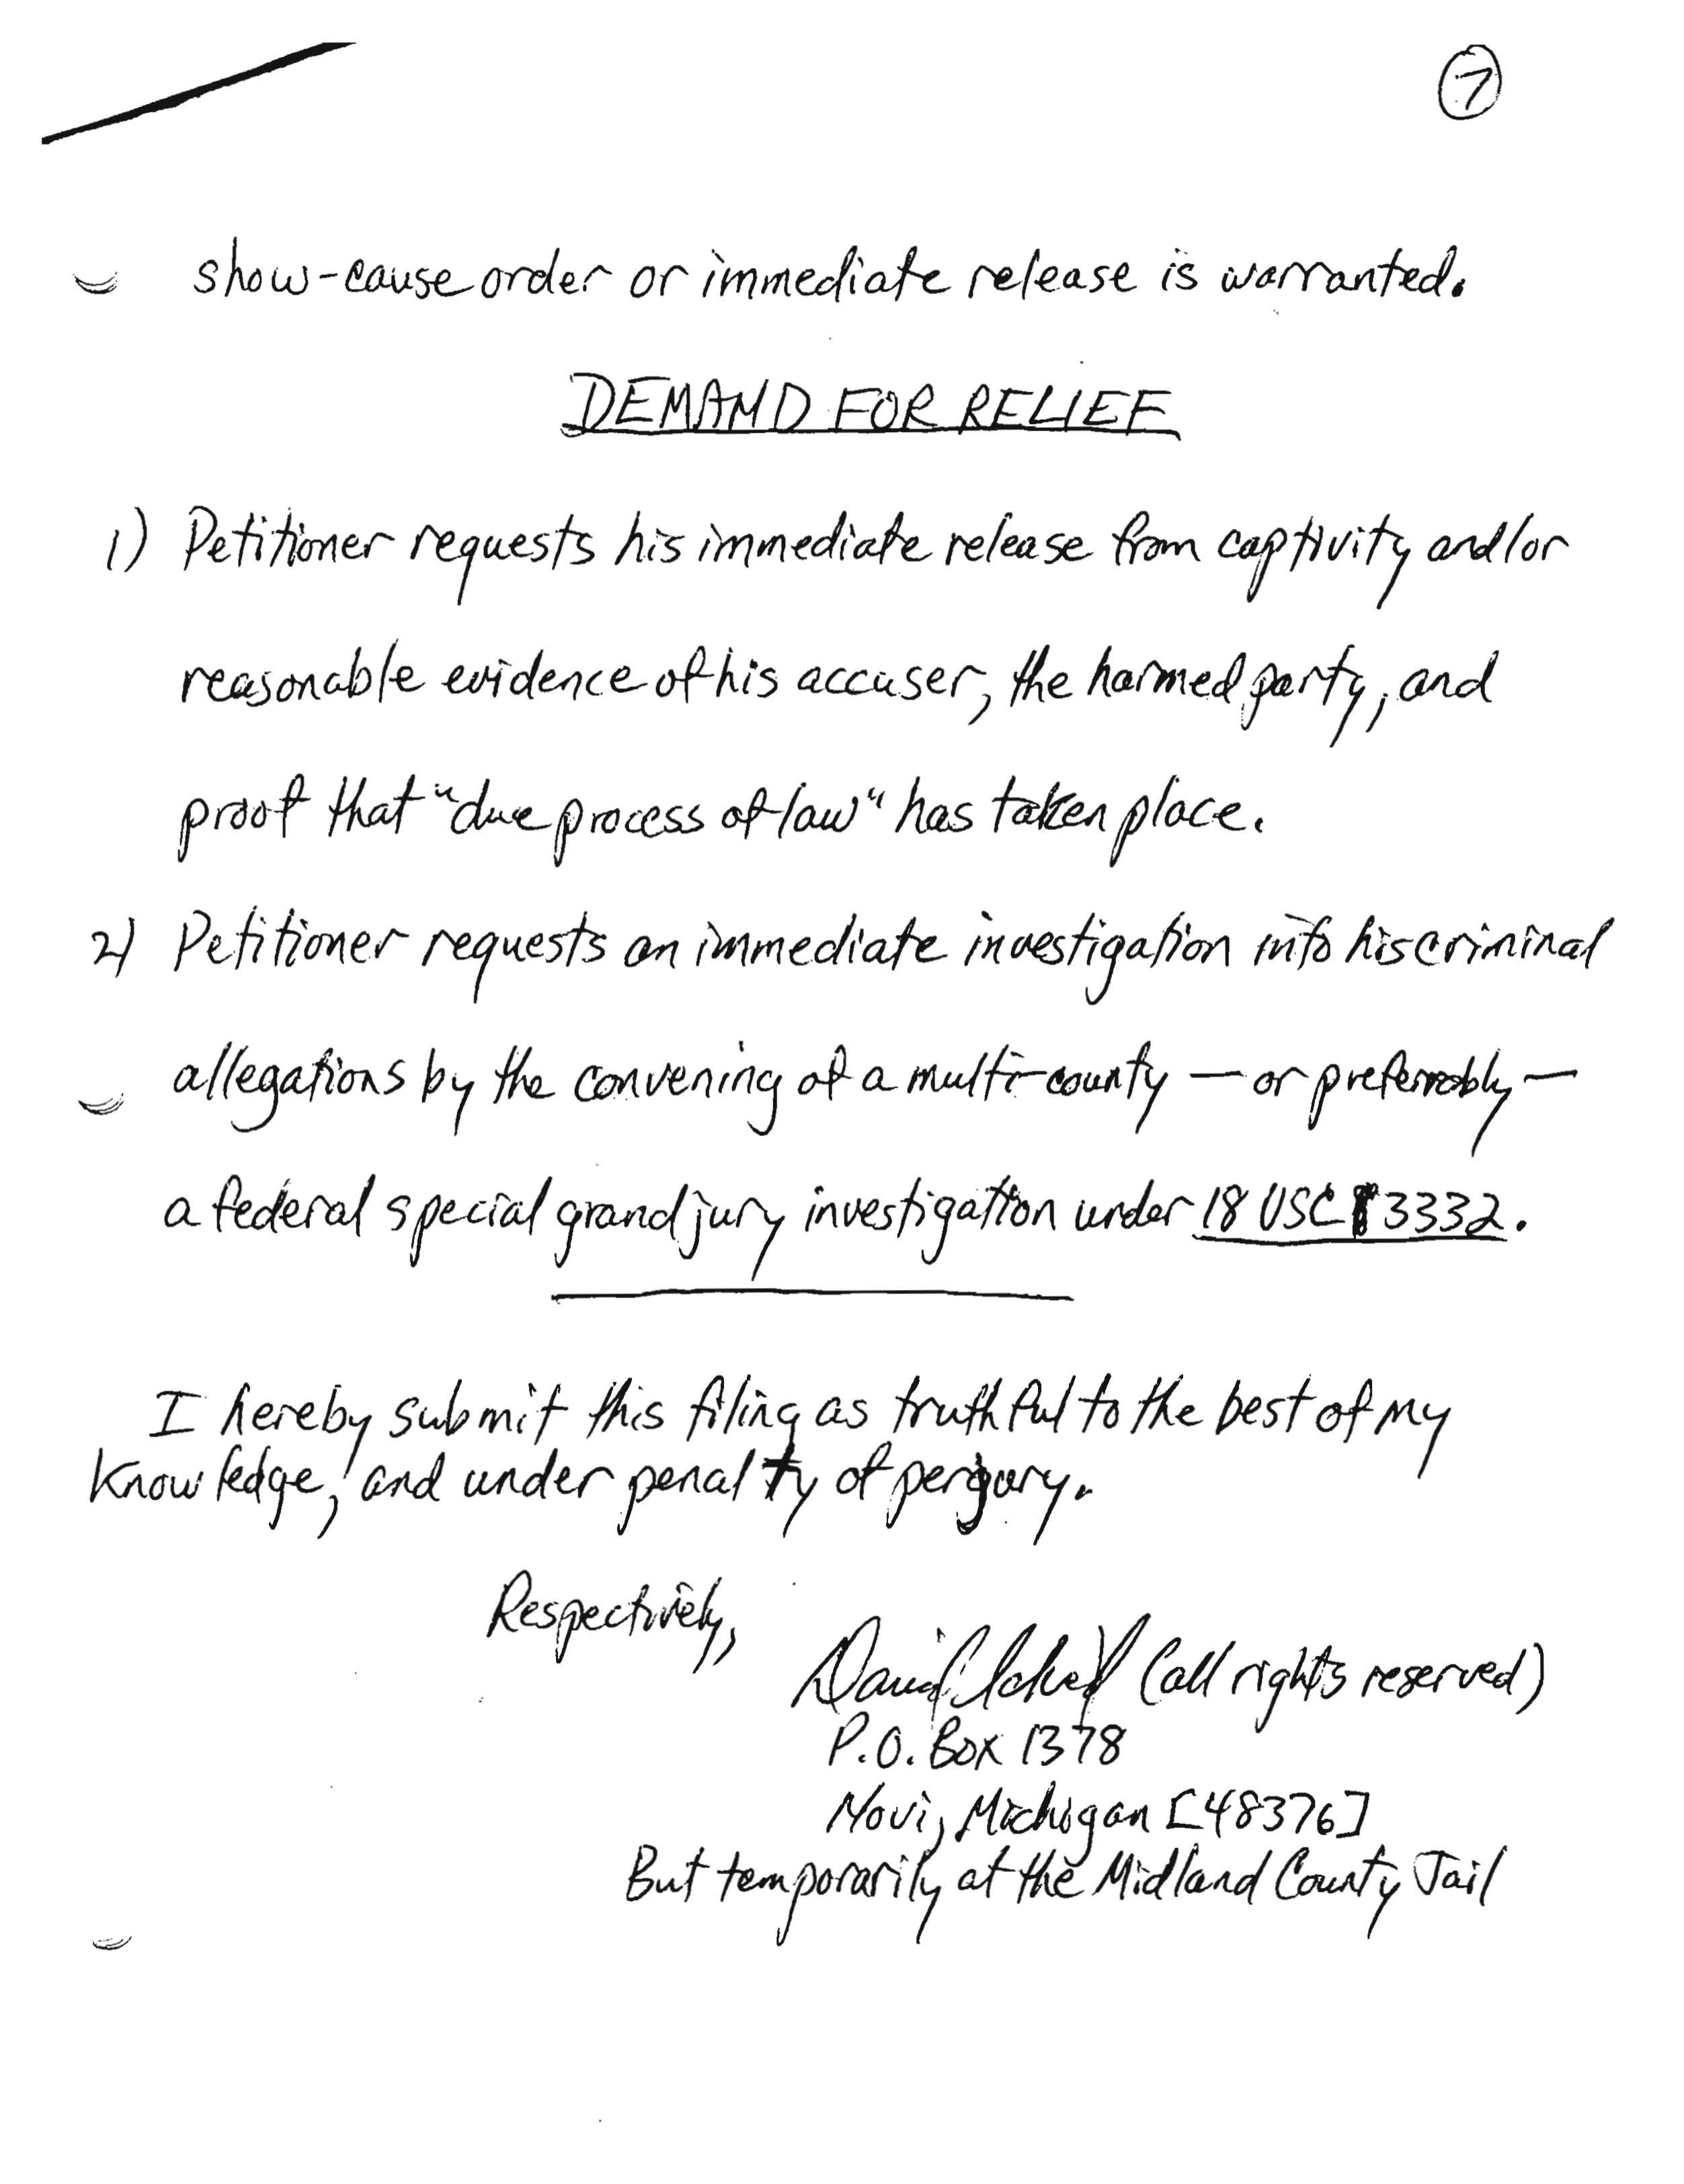 7
show-cause order or immediate release is warranted.
DEMAND FOR RELIEF
1) Petitioner requests his immediate release from captivity and/or
reasonable evidence of his accuser, the harmed party, and
proof that "due process of law" has taken place.
2) Petitioner requests an immediate investigation into his criminal
allegations by the convening of a multi-county — or preferrably —
a federal special grand jury investigation under 18 USC § 3332.
I hereby submit this filing as truthful to the best of my
Knowledge, and under penalty of perjury.
Respectively,
David (all rights reserved)
P.O. Box 1378
Novi, Michigan [48376]
But temporarily at the Midland County Jail